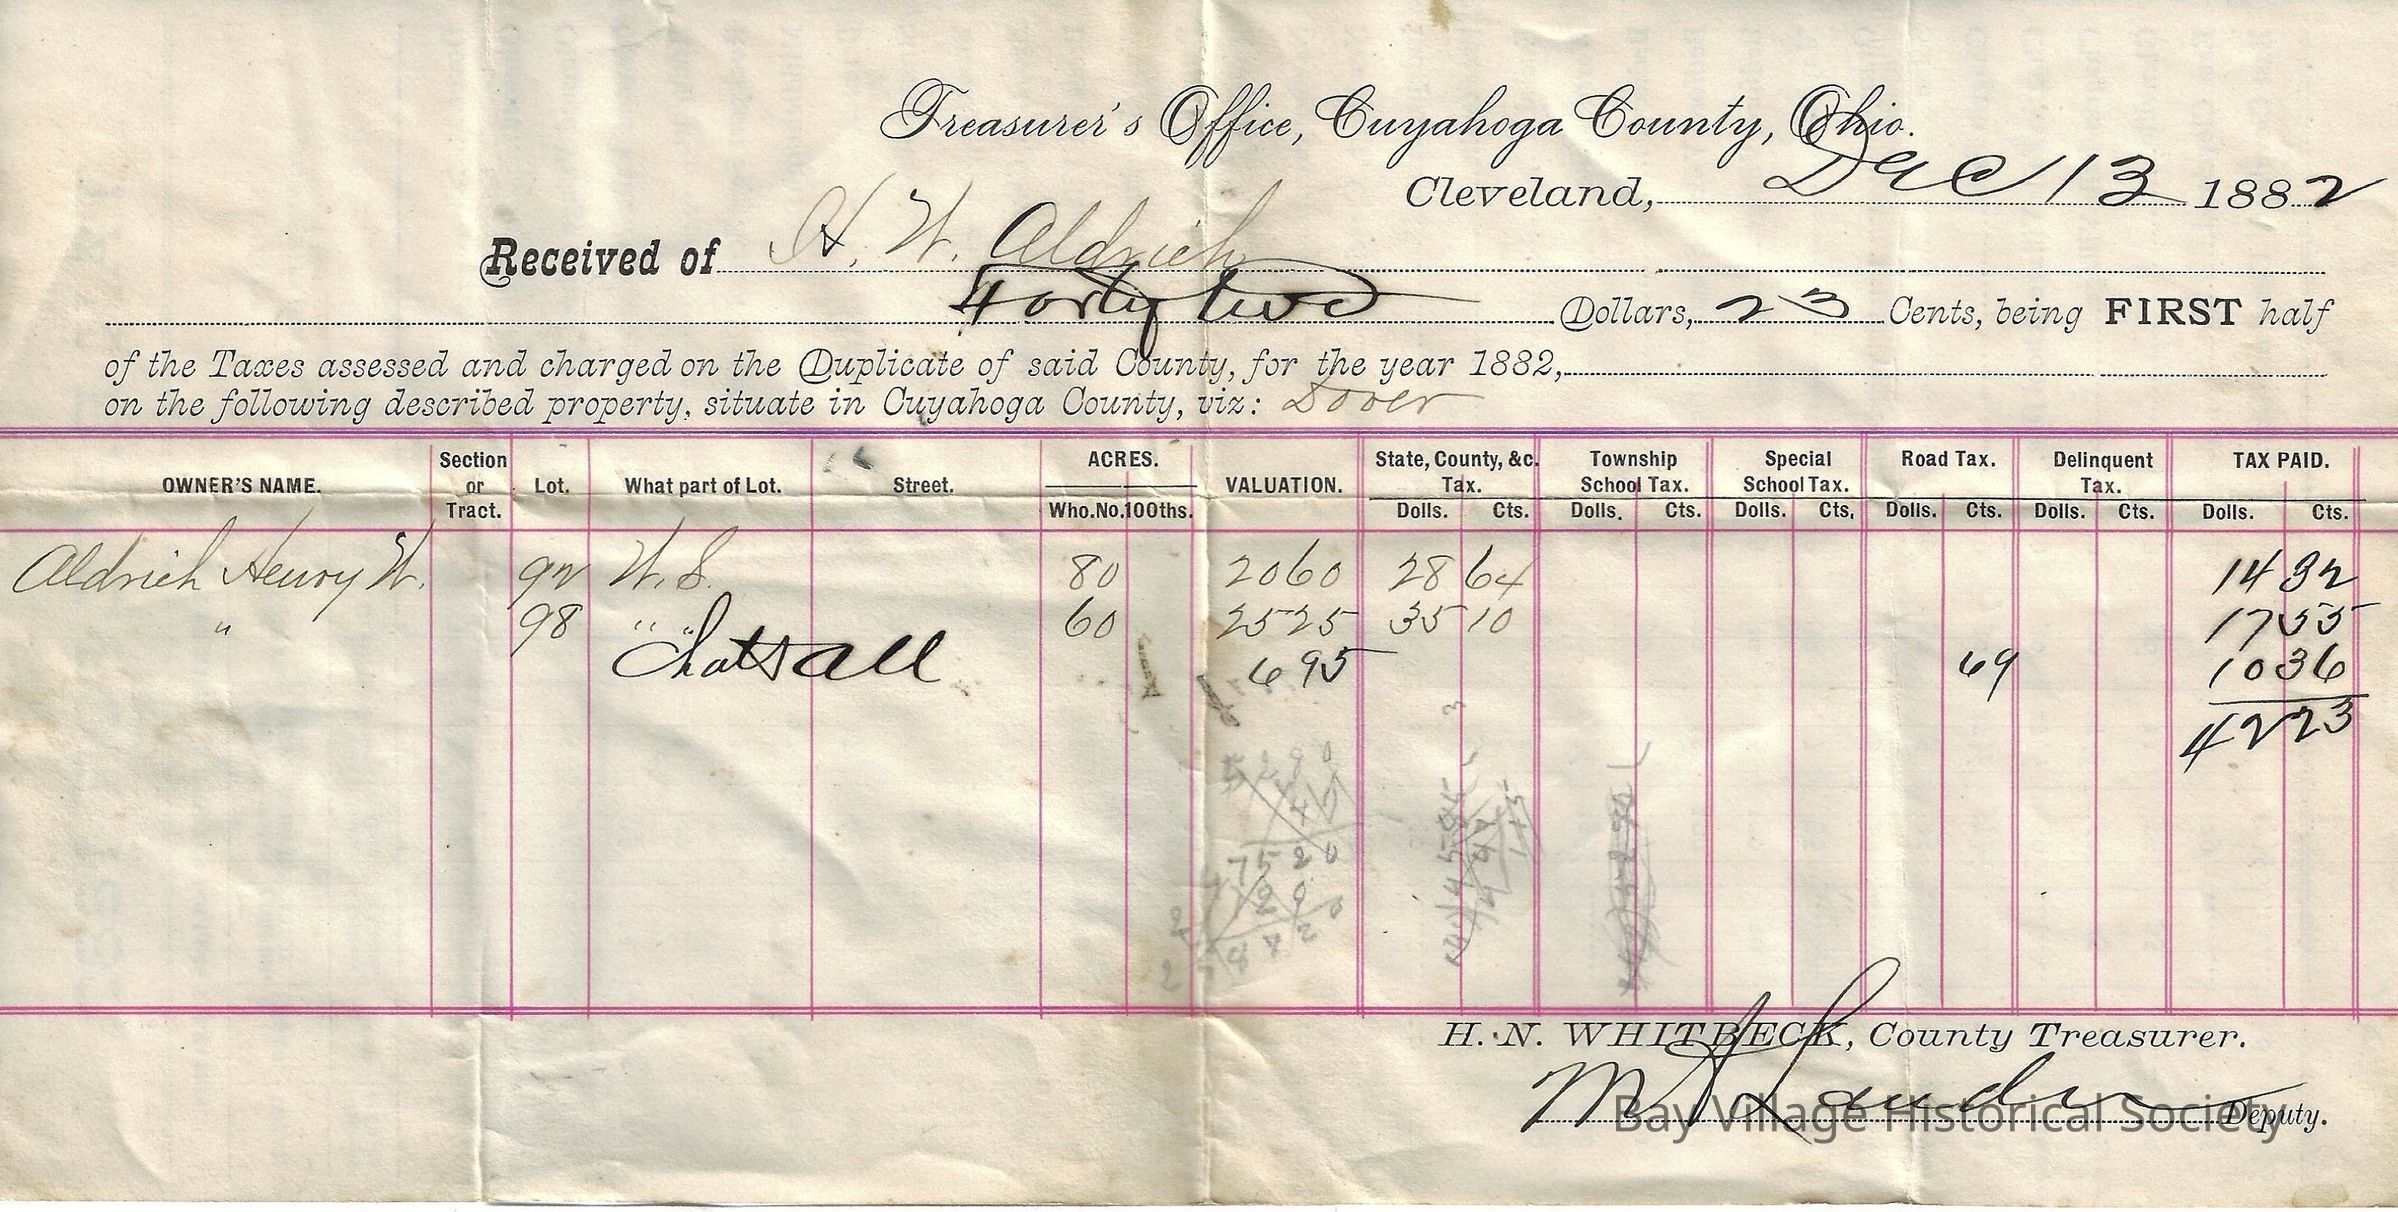 Treasurer's Office, Cuyahoga County, Ohio.
Cleveland, Dec 13 1882
Received of H. W. Aldrich
Forty two Dollars, 23 Cents, being FIRST half
of the Taxes assessed and charged on the Duplicate of said County, for the year 1882,
on the following described property, situate in Cuyahoga County, viz: Dover
OWNER'S NAME. Section or Tract. Lot. What part of Lot. Street. ACRES. Who.No. 100ths. VALUATION. State, County, &c. Tax. Dolls. Cts. Township School Tax. Dolls. Cts. Special School Tax. Dolls. Cts. Road Tax. Dolls. Cts. Delinquent Tax. Dolls. Cts. TAX PAID. Dolls. Cts.
Aldrich Henry W. 92 W.S. 80 2060 28 64 14 32
" 98 " " 60 2525 35 10 17 55
Chats all 695 69 10 36
42 23
H. N. WHITBECK, County Treasurer.
Deputy.
Bay Village Historical Society